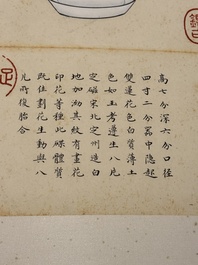 高七分深六分口徑
四寸二分器中隱起
雙蓮花色白質薄土
色如玉考遵生八牋
定磁宋北定州造白
地加泑其紋有畫花
印花等種此媒體質
既佳劃花生動與八